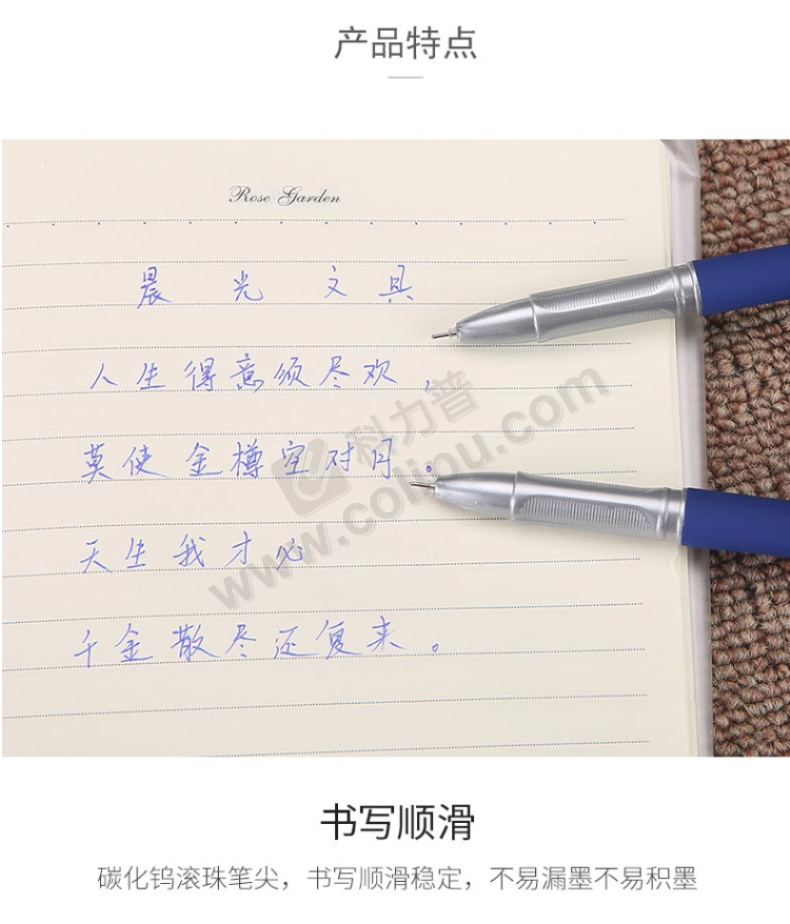 产品特点
Rose Garden
晨光文具
人生得意须尽欢，
莫使金樽空对月。
天生我才必
千金散尽还复来。
科力普
www.colipu.com
书写顺滑
碳化钨滚珠笔尖，书写顺滑稳定，不易漏墨不易积墨